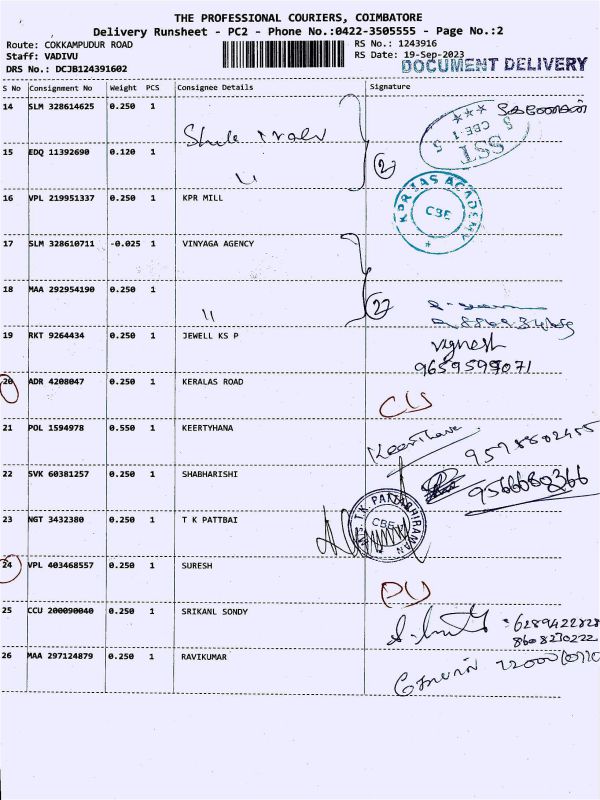 THE PROFESSIONAL COURIERS, COIMBATORE
Delivery Runsheet - PC2 - Phone No.:0422-3505555 - Page No.:2
Route: COKKAMPUDUR ROAD
RS No.: 1243916
Staff: VADIVU
RS Date: 19-Sep-2023
DRS No.: DCJB124391602
DOCUMENT DELIVERY
S No Consignment No Weight PCS Consignee Details Signature
14 SLM 328614625 0.250 1
SST CBE-1
15 EDQ 11392690 0.120 1
2
16 VPL 219951337 0.250 1 KPR MILL
KPR IAS ACADEMY CBE
17 SLM 328610711 -0.025 1 VINYAGA AGENCY
18 MAA 292954190 0.250 1
19 RKT 9264434 0.250 1 JEWELL KS P
Vignesh
9659599071
20 ADR 4208047 0.250 1 KERALAS ROAD
21 POL 1594978 0.550 1 KEERTYHANA
Keerthana
22 SVK 60381257 0.250 1 SHABHARISHI
23 NGT 3432380 0.250 1 T K PATTBAI
CBE
24 VPL 403468557 0.250 1 SURESH
25 CCU 200090040 0.250 1 SRIKANL SONDY
8608270222
26 MAA 297124879 0.250 1 RAVIKUMAR